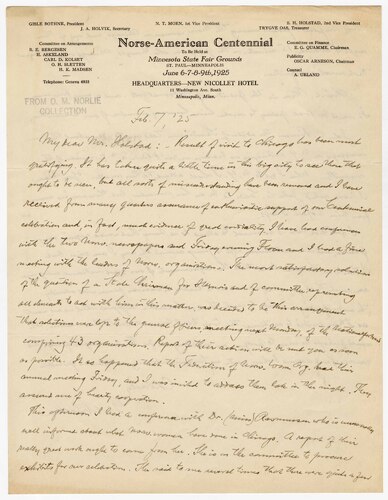 GISLE BOTHNE, President
N. T. MOEN, 1st Vice President
S. H. HOLSTAD, 2nd Vice President
J. A. HOLVIK, Secretary
TRYGVE OAS, Treasurer
Norse-American Centennial
To Be Held at
Minnesota State Fair Grounds
ST. PAUL—MINNEAPOLIS
June 6-7-8-9th, 1925
HEADQUARTERS—NEW NICOLLET HOTEL
Minneapolis, Minn.
Committee on Arrangements
S. E. BERGESEN
H. ASKELAND
CARL D. KOLSET
O. H. SLETTEN
H. K. MADSEN
Telephone: Geneva
Committee on Finance
E. G. QUAMME, Chairman
Publicity
OSCAR ARNESON, Chairman
Counsel
A. UELAND
FROM O. M. NORLIE
COLLECTION
Feb. 7, '25
My dear Mr. Holstad: Result of visit to Chicago has been most
gratifying. It has taken quite a little time in this big city to see them that
ought to be seen, but all sorts of misunderstanding have been removed and I have
received from many quarters assurance of enthusiastic support of our Centennial
celebration and, in fact, much evidence of great cordiality. I have had conferences
with the two Norw. newspapers and Friday evening and I had a fine
meeting with the leaders of Norw. organizations. The most satisfactory solution
of the question of a State Chairman for Illinois and of committee representing
all elements to act with him in this matter, was decided to be the arrangement
that solution was up to the general officers meeting next Monday of the
comprising 43 organizations. Report of their action will be sent you as soon
as possible. It so happened that the Federation of Norw. Women Org. had their
annual meeting Friday, and I was invited to address them late in the night. They
assured me of hearty cooperation.
This afternoon I had a conference with Dr. (Miss) Rasmussen who is unusually
well informed about what Norw. women have done in Chicago. A report of their
really great work ought to come from her. She is on the committee to procure
exhibits for our celebration. She said to me several times that there were quite a few